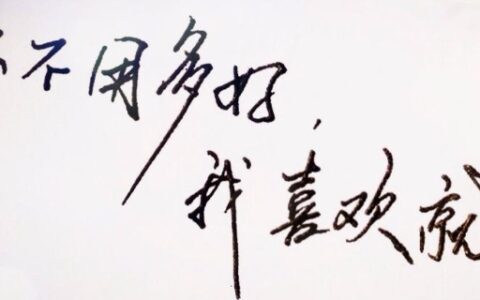 不用多好,
我喜欢就